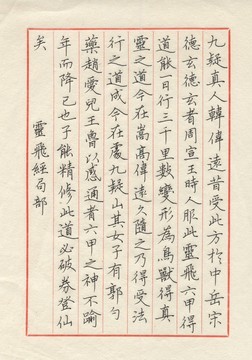 九疑真人韓偉遠昔受此方於中岳宗
德玄德玄者周宣王時人服此靈飛六甲得
道能一日行三千里數變形為鳥獸得真
靈之道今在嵩高偉遠久隨之乃得受法
行之道成今在處九疑山其女子有郭勺
藥趙愛兒王魯以感通者六甲之神不踰
年而降己也子能精修此道必破券登仙
矣
靈飛經句部